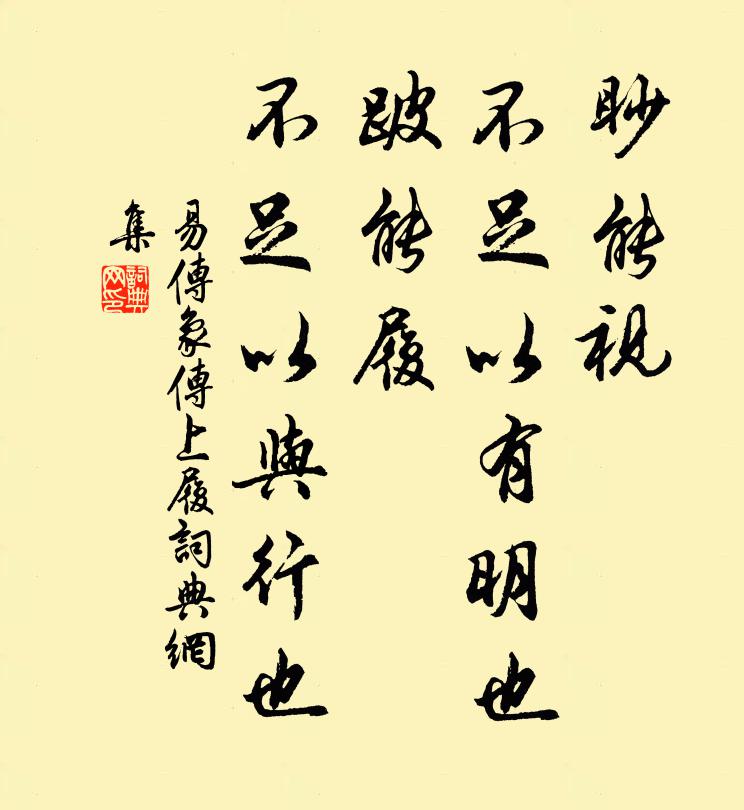 眇能視
不足以有明也
跛能履
不足以與行也
易傳象傳上履詞典網
集
詞典
网印